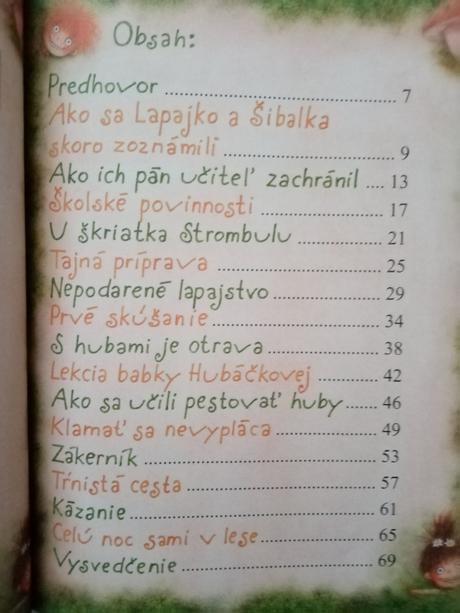 Obsah:
Predhovor .......... 7
Ako sa Lapajko a Šibalka
skoro zoznámili .......... 9
Ako ich pán učiteľ zachránil .... 13
Školské povinnosti .......... 17
U škriatka Strombulu .......... 21
Tajná príprava .......... 25
Nepodarené lapajstvo .......... 29
Prvé skúšanie .......... 34
S hubami je otrava .......... 38
Lekcia babky Hubáčkovej .......... 42
Ako sa učili pestovať huby ...... 46
Klamať sa nevypláca .......... 49
Zákerník .......... 53
Tŕnistá cesta .......... 57
Kázanie .......... 61
Celú noc sami v lese .......... 65
Vysvedčenie .......... 69